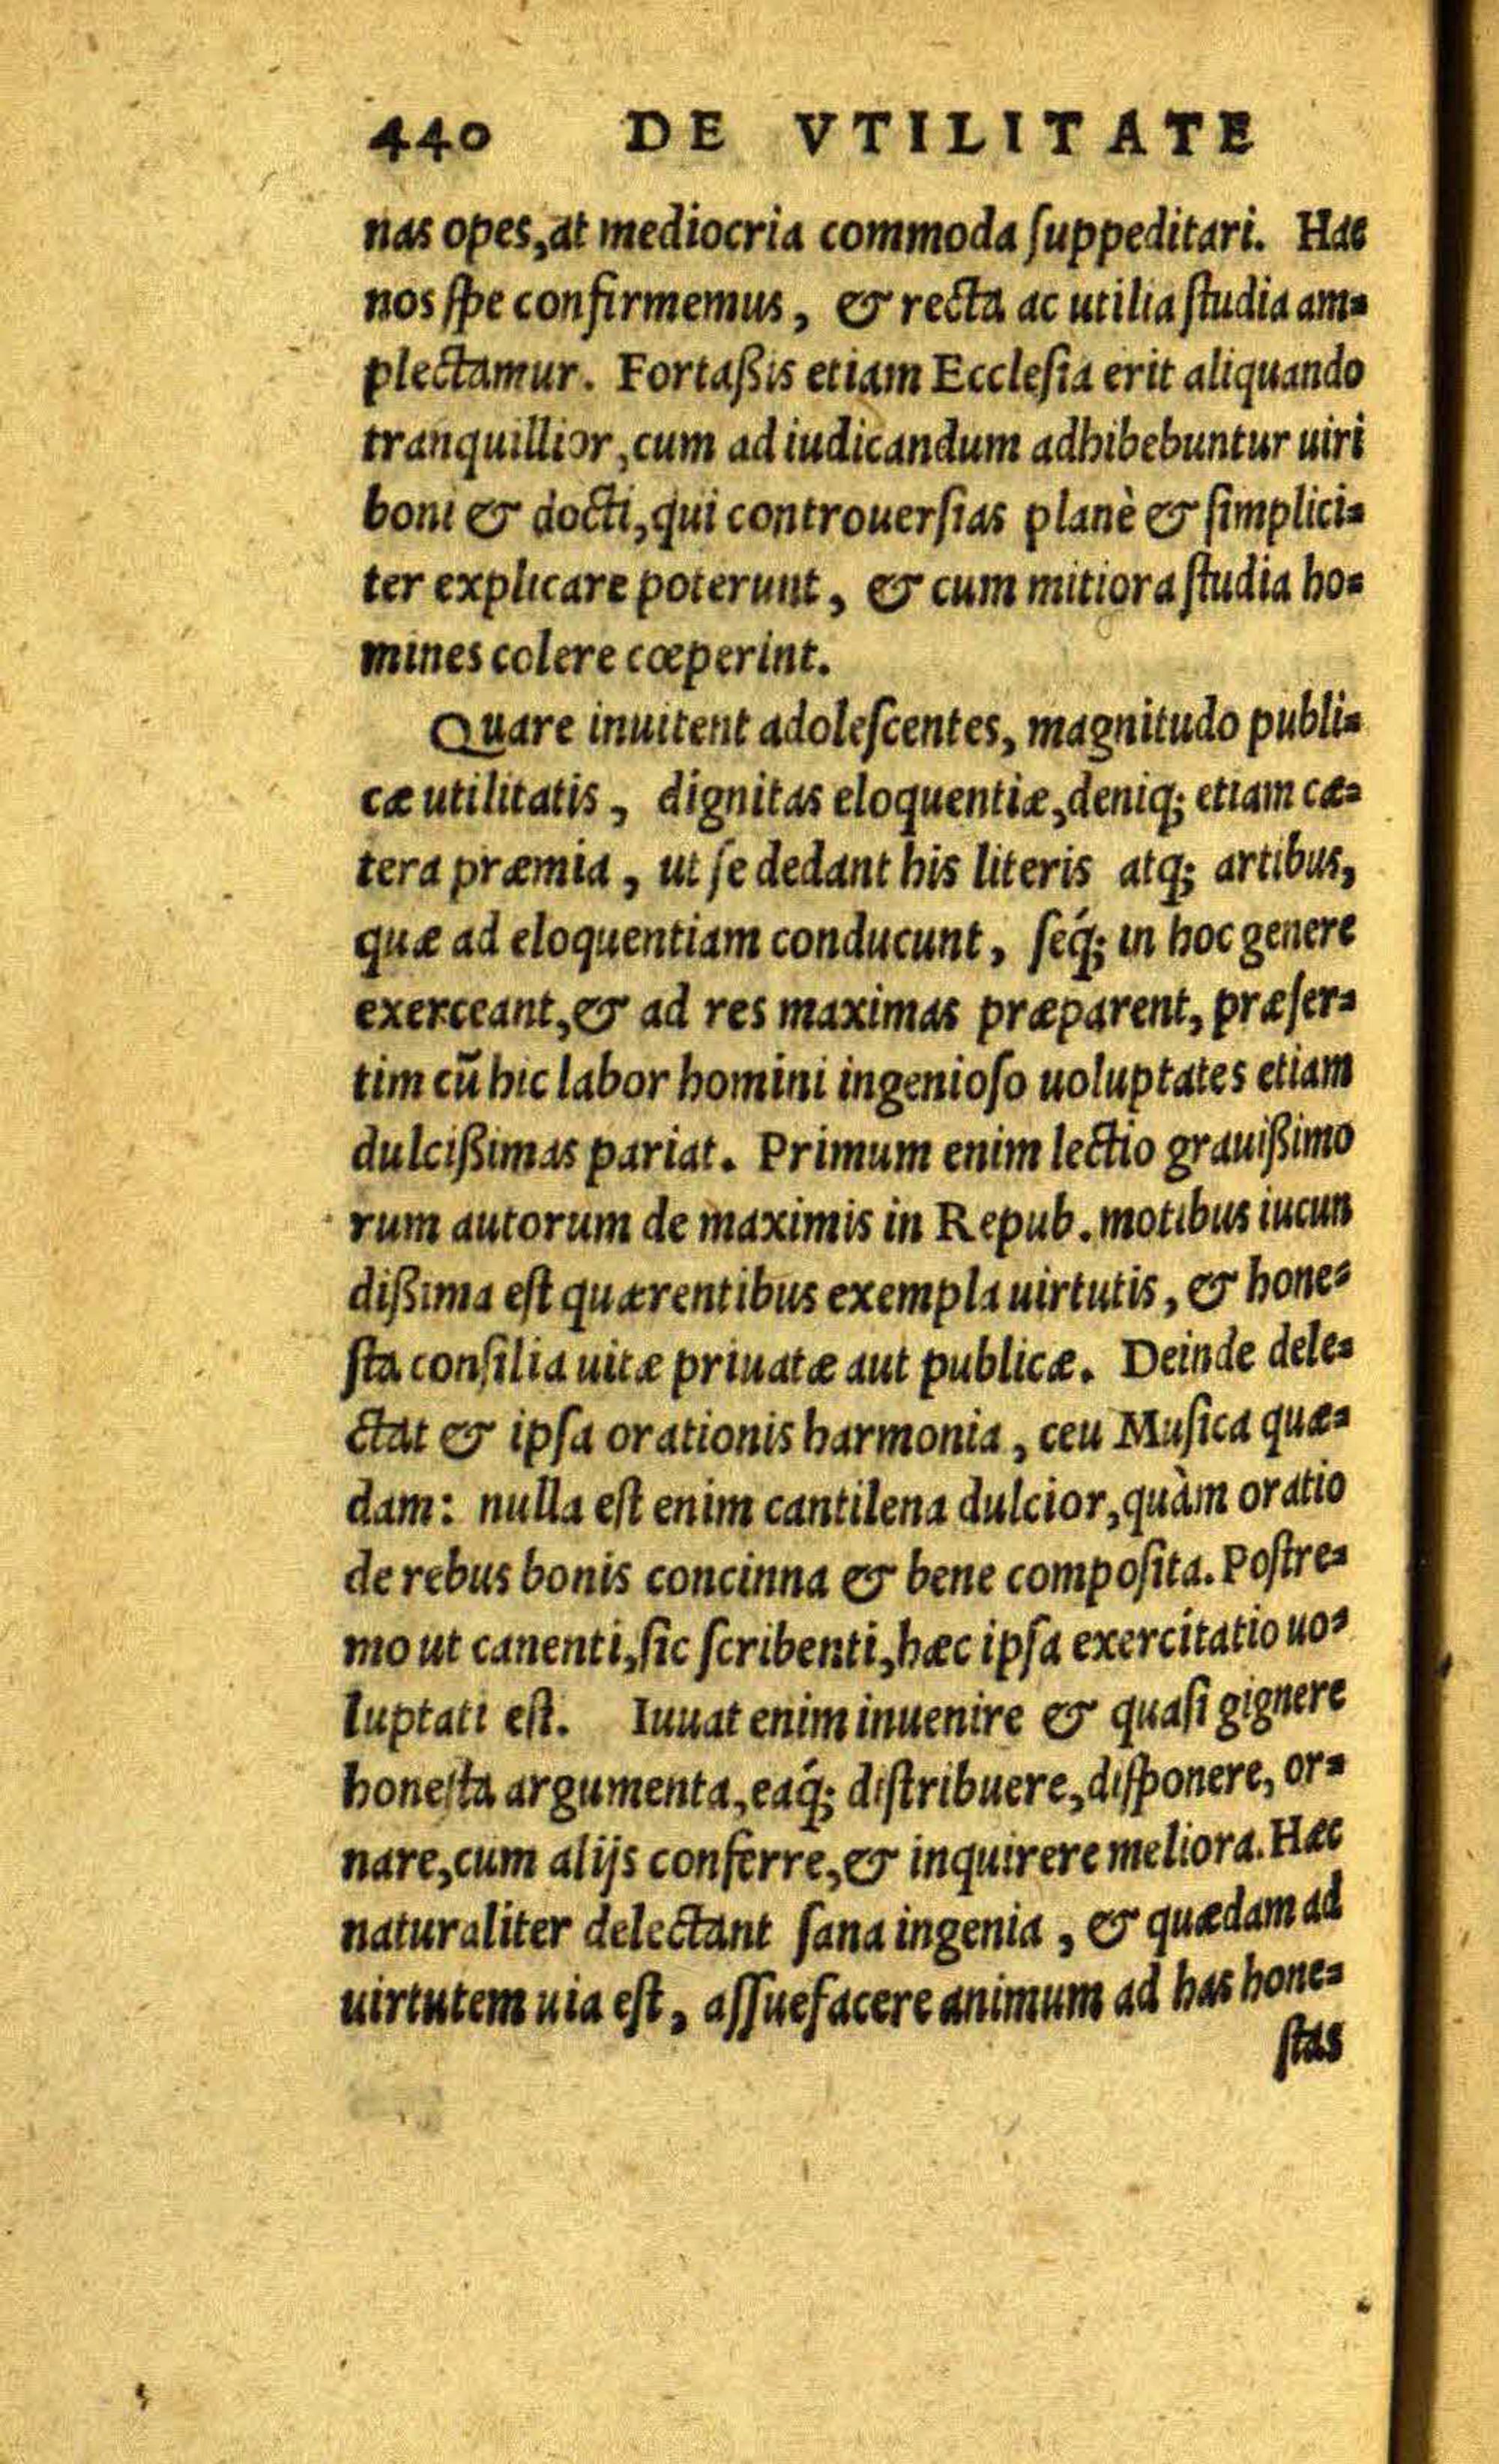 440 DE VTILITATE
nas opes, at mediocria commoda ſuppeditari. Hac
nos ſpe confirmemus, & recta ac utilia ſtudia am-
plectamur. Fortaßis etiam Eccleſia erit aliquando
tranquillior, cum ad iudicandum adhibebuntur uiri
boni & docti, qui controuerſias planè & ſimplici-
ter explicare poterunt, & cum mitiora ſtudia ho-
mines colere cœperint.
Quare inuitent adoleſcentes, magnitudo publi-
cæ utilitatis, dignitas eloquentiæ, deniq; etiam cæ-
tera præmia, ut ſe dedant his literis atq; artibus,
quæ ad eloquentiam conducunt, ſéq; in hoc genere
exerceant, & ad res maximas præparent, præſer-
tim cū hic labor homini ingenioſo uoluptates etiam
dulcißimas pariat. Primum enim lectio grauißimo
rum autorum de maximis in Repub. motibus iucun
dißima eſt quærentibus exempla uirtutis, & hone-
ſta conſilia uitæ priuatæ aut publicæ. Deinde dele-
ctat & ipſa orationis harmonia, ceu Muſica quæ-
dam: nulla eſt enim cantilena dulcior, quàm oratio
de rebus bonis concinna & bene compoſita. Poſtre-
mo ut canenti, ſic ſcribenti, hæc ipſa exercitatio uo-
luptati eſt. Iuuat enim inuenire & quaſi gignere
honeſta argumenta, eáq; diſtribuere, diſponere, or-
nare, cum alijs conferre, & inquirere meliora. Hæc
naturaliter delectant ſana ingenia, & quædam ad
uirtutem uia eſt, aſſuefacere animum ad has hone-
ſtas